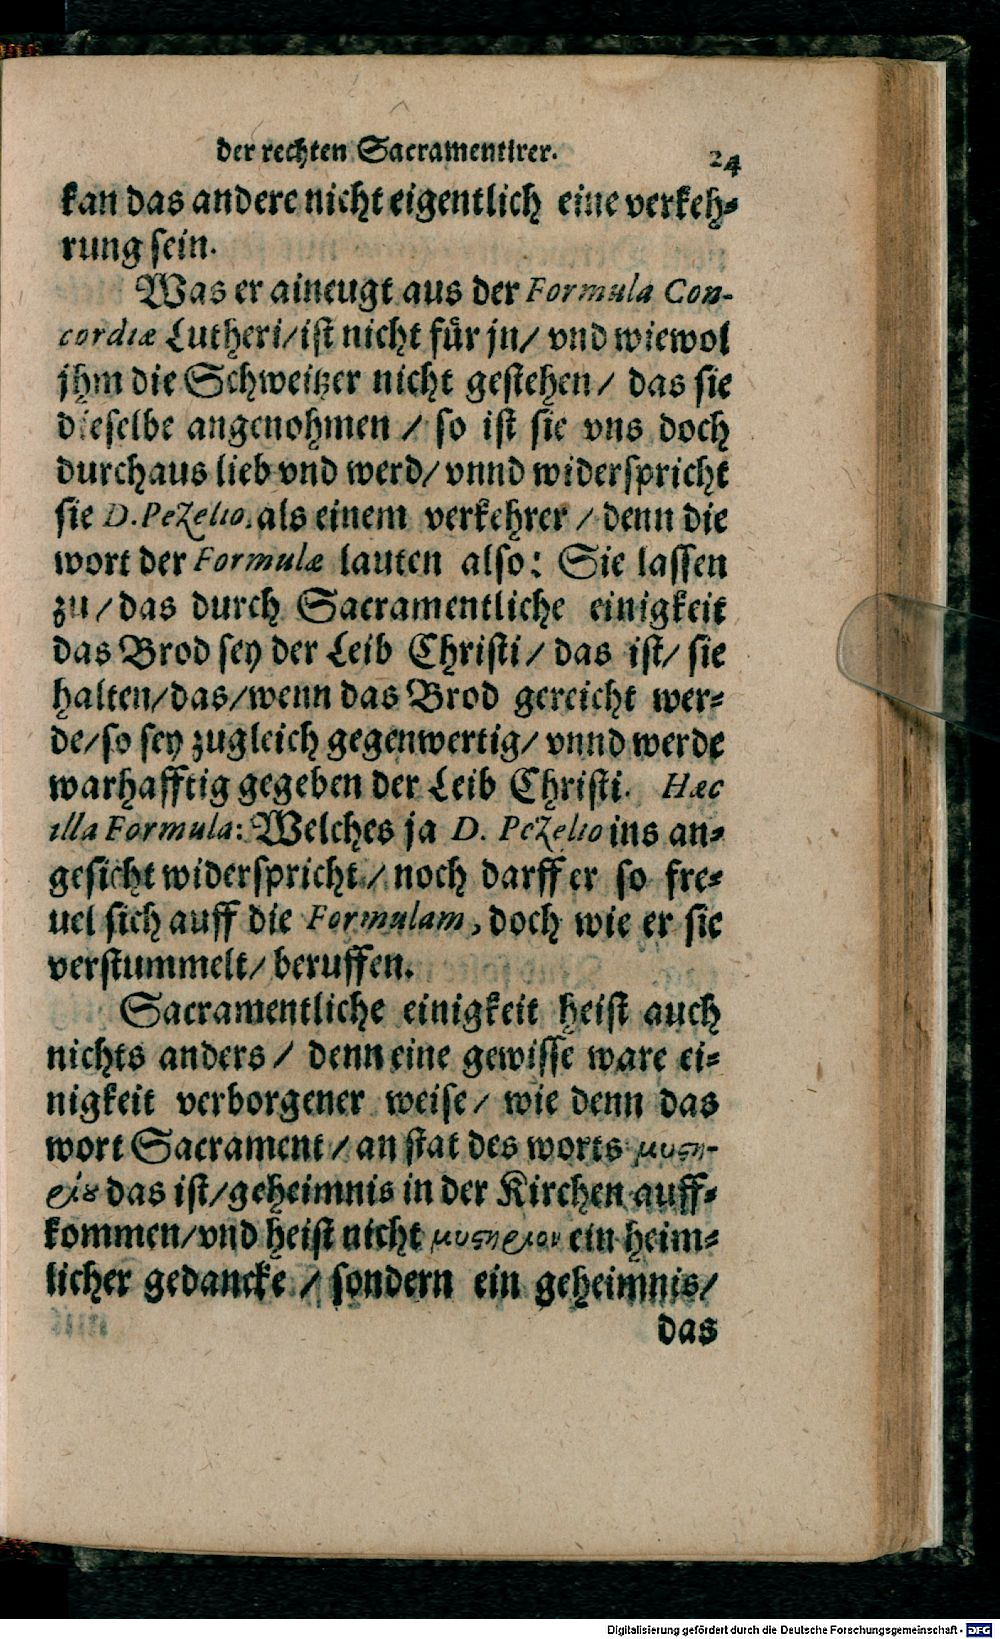 der rechten Sacramentirer.
24
kan das andere nicht eigentlich eine verkeh-
rung sein.
Was er aineugt aus der Formula Con-
cordiæ Lutheri/ist nicht für jn/ vnd wiewol
jhm die Schweitzer nicht gestehen/ das sie
dieselbe angenohmen / so ist sie vns doch
durchaus lieb vnd werd/ vnnd widerspricht
sie D. Pezelio. als einem verkehrer / denn die
wort der Formulæ lauten also: Sie lassen
zu/das durch Sacramentliche einigkeit
das Brod sey der Leib Christi/ das ist/ sie
halten/das/wenn das Brod gereicht wer-
de/so sey zugleich gegenwertig/ vnnd werde
warhafftig gegeben der Leib Christi. Hæc
illa Formula: Welches ja D. Pezelio ins an-
gesicht widerspricht / noch darff er so fre-
uel sich auff die Formulam, doch wie er sie
verstummelt/ beruffen.
Sacramentliche einigkeit heist auch
nichts anders / denn eine gewisse ware ei-
nigkeit verborgener weise/ wie denn das
wort Sacrament / an stat des worts μυςη-
ρίȣ das ist/geheimnis in der Kirchen auff-
kommen/vnd heist nicht μυςηριον ein heim-
licher gedancke / sondern ein geheimnis/
das
Digitalisierung gefördert durch die Deutsche Forschungsgemeinschaft - DFG